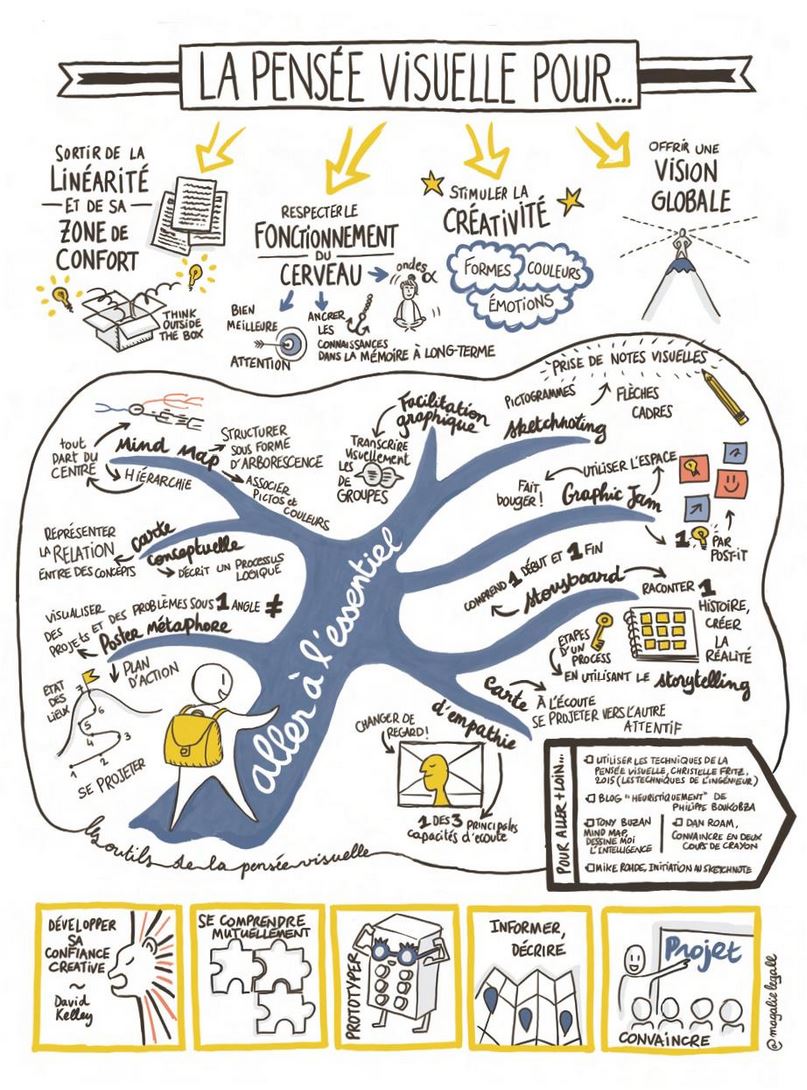 LA PENSÉE VISUELLE POUR...
SORTIR DE LA
LINÉARITÉ
ET DE SA
ZONE DE
CONFORT
THINK
OUTSIDE
THE BOX
RESPECTER LE
FONCTIONNEMENT
DU
CERVEAU
ondes α
BIEN
MEILLEURE
ATTENTION
ANCRER
LES
CONNAISSANCES
DANS LA MÉMOIRE À LONG-TERME
STIMULER LA
CRÉATIVITÉ
FORMES
COULEURS
ÉMOTIONS
OFFRIR UNE
VISION
GLOBALE
Mind Map
tout
PART DU
CENTRE
HIÉRARCHIE
STRUCTURER
SOUS FORME
D'ARBORESCENCE
ASSOCIER
PICTOS et
COULEURS
carte
conceptuelle
REPRÉSENTER
LA RELATION
ENTRE DES CONCEPTS
DÉCRIT UN PROCESSUS
LOGIQUE
VISUALISER
DES
PROJETS ET DES PROBLÈMES SOUS 1 ANGLE ≠
Poster métaphore
PLAN
D'ACTION
ETAT
DES
LIEUX
1
2
3
4
5
6
7
SE PROJETER
aller à l'essentiel
Facilitation
graphique
TRANSCRIRE
Visuellement
LES
DE
GROUPES
PRISE DE NOTES VISUELLES
PICTOGRAMMES
FLÈCHES
CADRES
sketchnoting
UTILISER L'ESPACE
FAIT
bouger !
Graphic Jam
1
PAR
POST-IT
COMPREND 1 DÉBUT ET 1 FIN
storyboard
RACONTER 1
HISTOIRE,
CRÉER
LA
RÉALITÉ
ETAPES
D'UN
PROCESS
EN UTILISANT LE storytelling
Carte
d'empathie
À L'ÉCOUTE
SE PROJETER VERS L'AUTRE
ATTENTIF
CHANGER DE
REGARD !
1 DES 3 PRINCIPALES
capacités d'écoute
les outils de la pensée visuelle
POUR ALLER + LOIN...
UTILISER LES TECHNIQUES DE LA
PENSÉE VISUELLE, CHRISTELLE FRITZ,
2015 (LES TECHNIQUES DE L'INGÉNIEUR)
BLOG "HEURISTIQUEMENT" DE
PHILIPPE BOUKOBZA
TONY BUZAN
MIND MAP,
DESSINE MOI
L'INTELLIGENCE
DAN ROAM,
CONVAINCRE EN DEUX
COUPS DE CRAYON
MIKE ROHDE, INITIATION AU SKETCHNOTE
DÉVELOPPER
SA
CONFIANCE
CREATIVE
~
David
Kelley
SE COMPRENDRE
MUTUELLEMENT
PROTOTYPER
INFORMER,
DÉCRIRE.
Projet
CONVAINCRE
@magalie legall